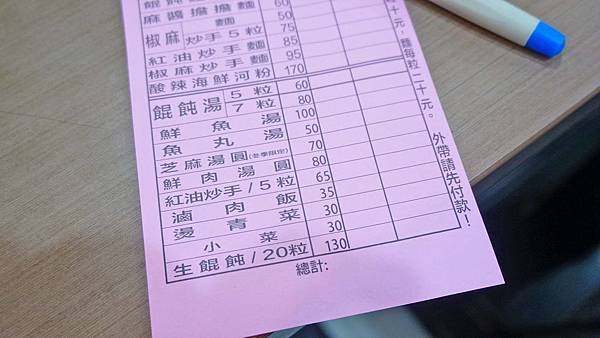 麻醬擔擔麵 60
椒麻 麵 50
炒手5粒 75
紅油炒手麵 85
椒麻炒手麵 95
酸辣海鮮河粉 170
餛飩湯 5粒 60
7粒 80
鮮魚湯 100
魚丸湯 50
芝麻湯圓(冬季限定) 70
鮮肉湯圓 80
紅油炒手/5粒 65
滷肉飯 35
燙青菜 30
小菜 30
生餛飩/20粒 130
總計:
十元,麵每粒二十元。
外帶請先付款!